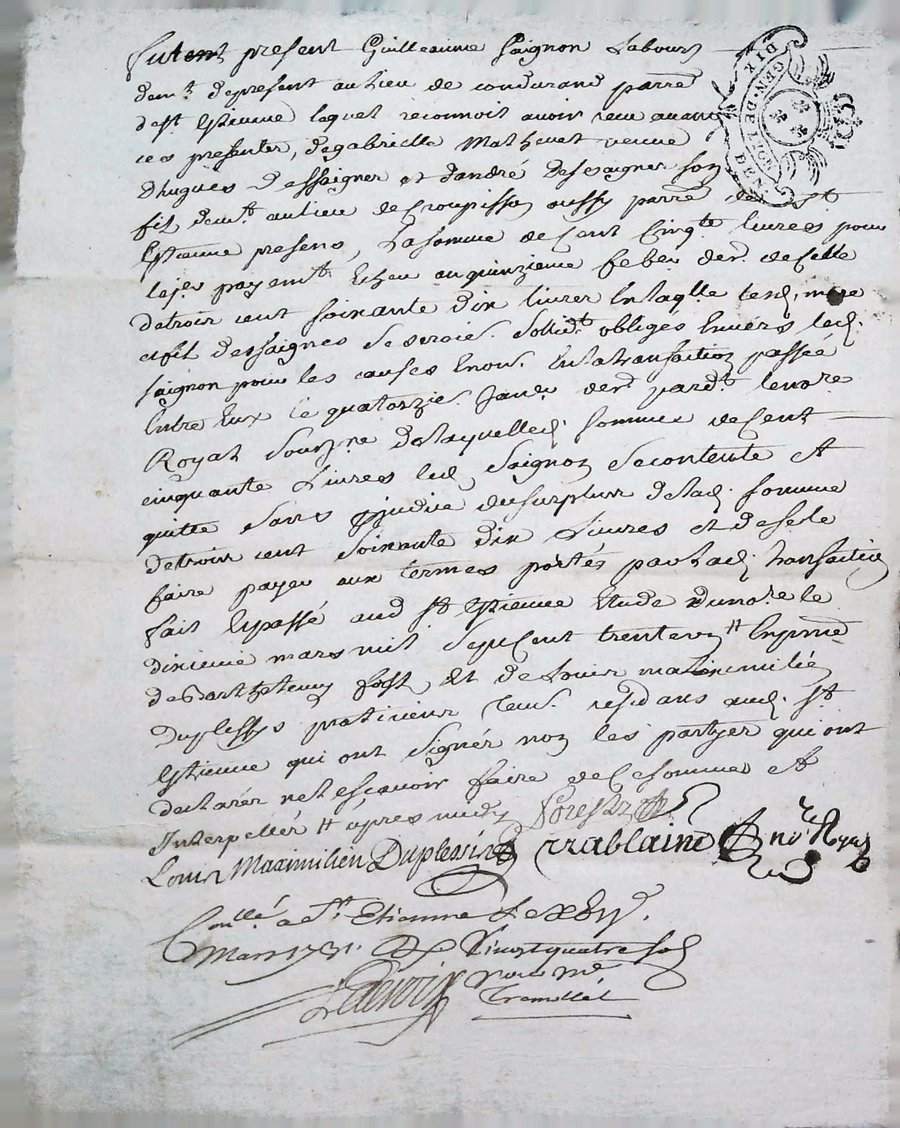 furent present Guilleaume Saignon Labour
dem.t depresent au lieu de condurand parre
de st Estienne lequel reconnoit avoir receu avant
ces presentes, degabrielle Mathevet veuve
dhugues Dessaignes et dandré dessaignes son
fils dem.t aulieu de Croupisson aussy parre de St
Estienne presens, Lasomme de Cent Cinqte livres pour
le je payemt. Echeu auquinzieme feber der. de Celle
detrois cent soixante dix livres Enlaqlle lesd. mere
et fils dessaignes seseroie. Sollidt. obliges Envers led.
Saignon pour les causes Enon. Enlatransaction passée
Entre Eux le quatorzie. Janv. der pardt. lenore
Royal Sousne delaquelled. somme deCent
cinquante Livres led Saignon secontente et
quitte sans prejudice dusurplus delad. somme
detrois cent soixante dix Livres et desele
faire payer aux termes portés par lad. transaction
fait Epassé aud st Estienne Etude dunore le
dixieme mars mil Septcent trente un Enpnce
de Barthelemy forest et de Louis maximilien
Duplessys praticiens Tous. residans aud. St
Estienne qui ont Signés non les parties qui ont
declarés nelesçavoir faire deCesommés et
Interpellés apres midy Forest
Louis Maximilien Duplessis Trablaine nore Royal
Conllé a St Etienne Le
Mars 1731. Vingt quatre sols
Tremollet